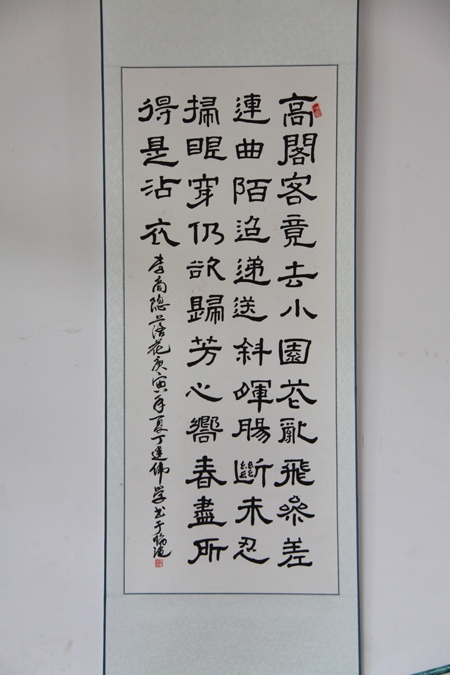 高閣客竟去小園花亂飛參差
連曲陌迢遞送斜暉腸斷未忍
掃眼穿仍欲歸芳心嚮春盡所
得是沾衣 李商隐落花庚寅年夏丁伟学书于